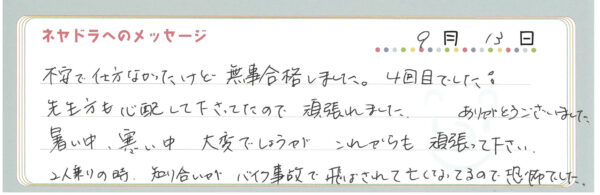 ネヤドラへのメッセージ
9月 13日
不安で仕方なかったけど 無事合格しました。4回目でした。
先生方も心配して下さってたので 頑張れました. ありがとうございました.
暑い中、寒い中 大変でしょうが これからも 頑張って下さい.
2人乗りの時. 知り合いが バイク事故で 飛ばされて亡くなってるので恐怖でした.